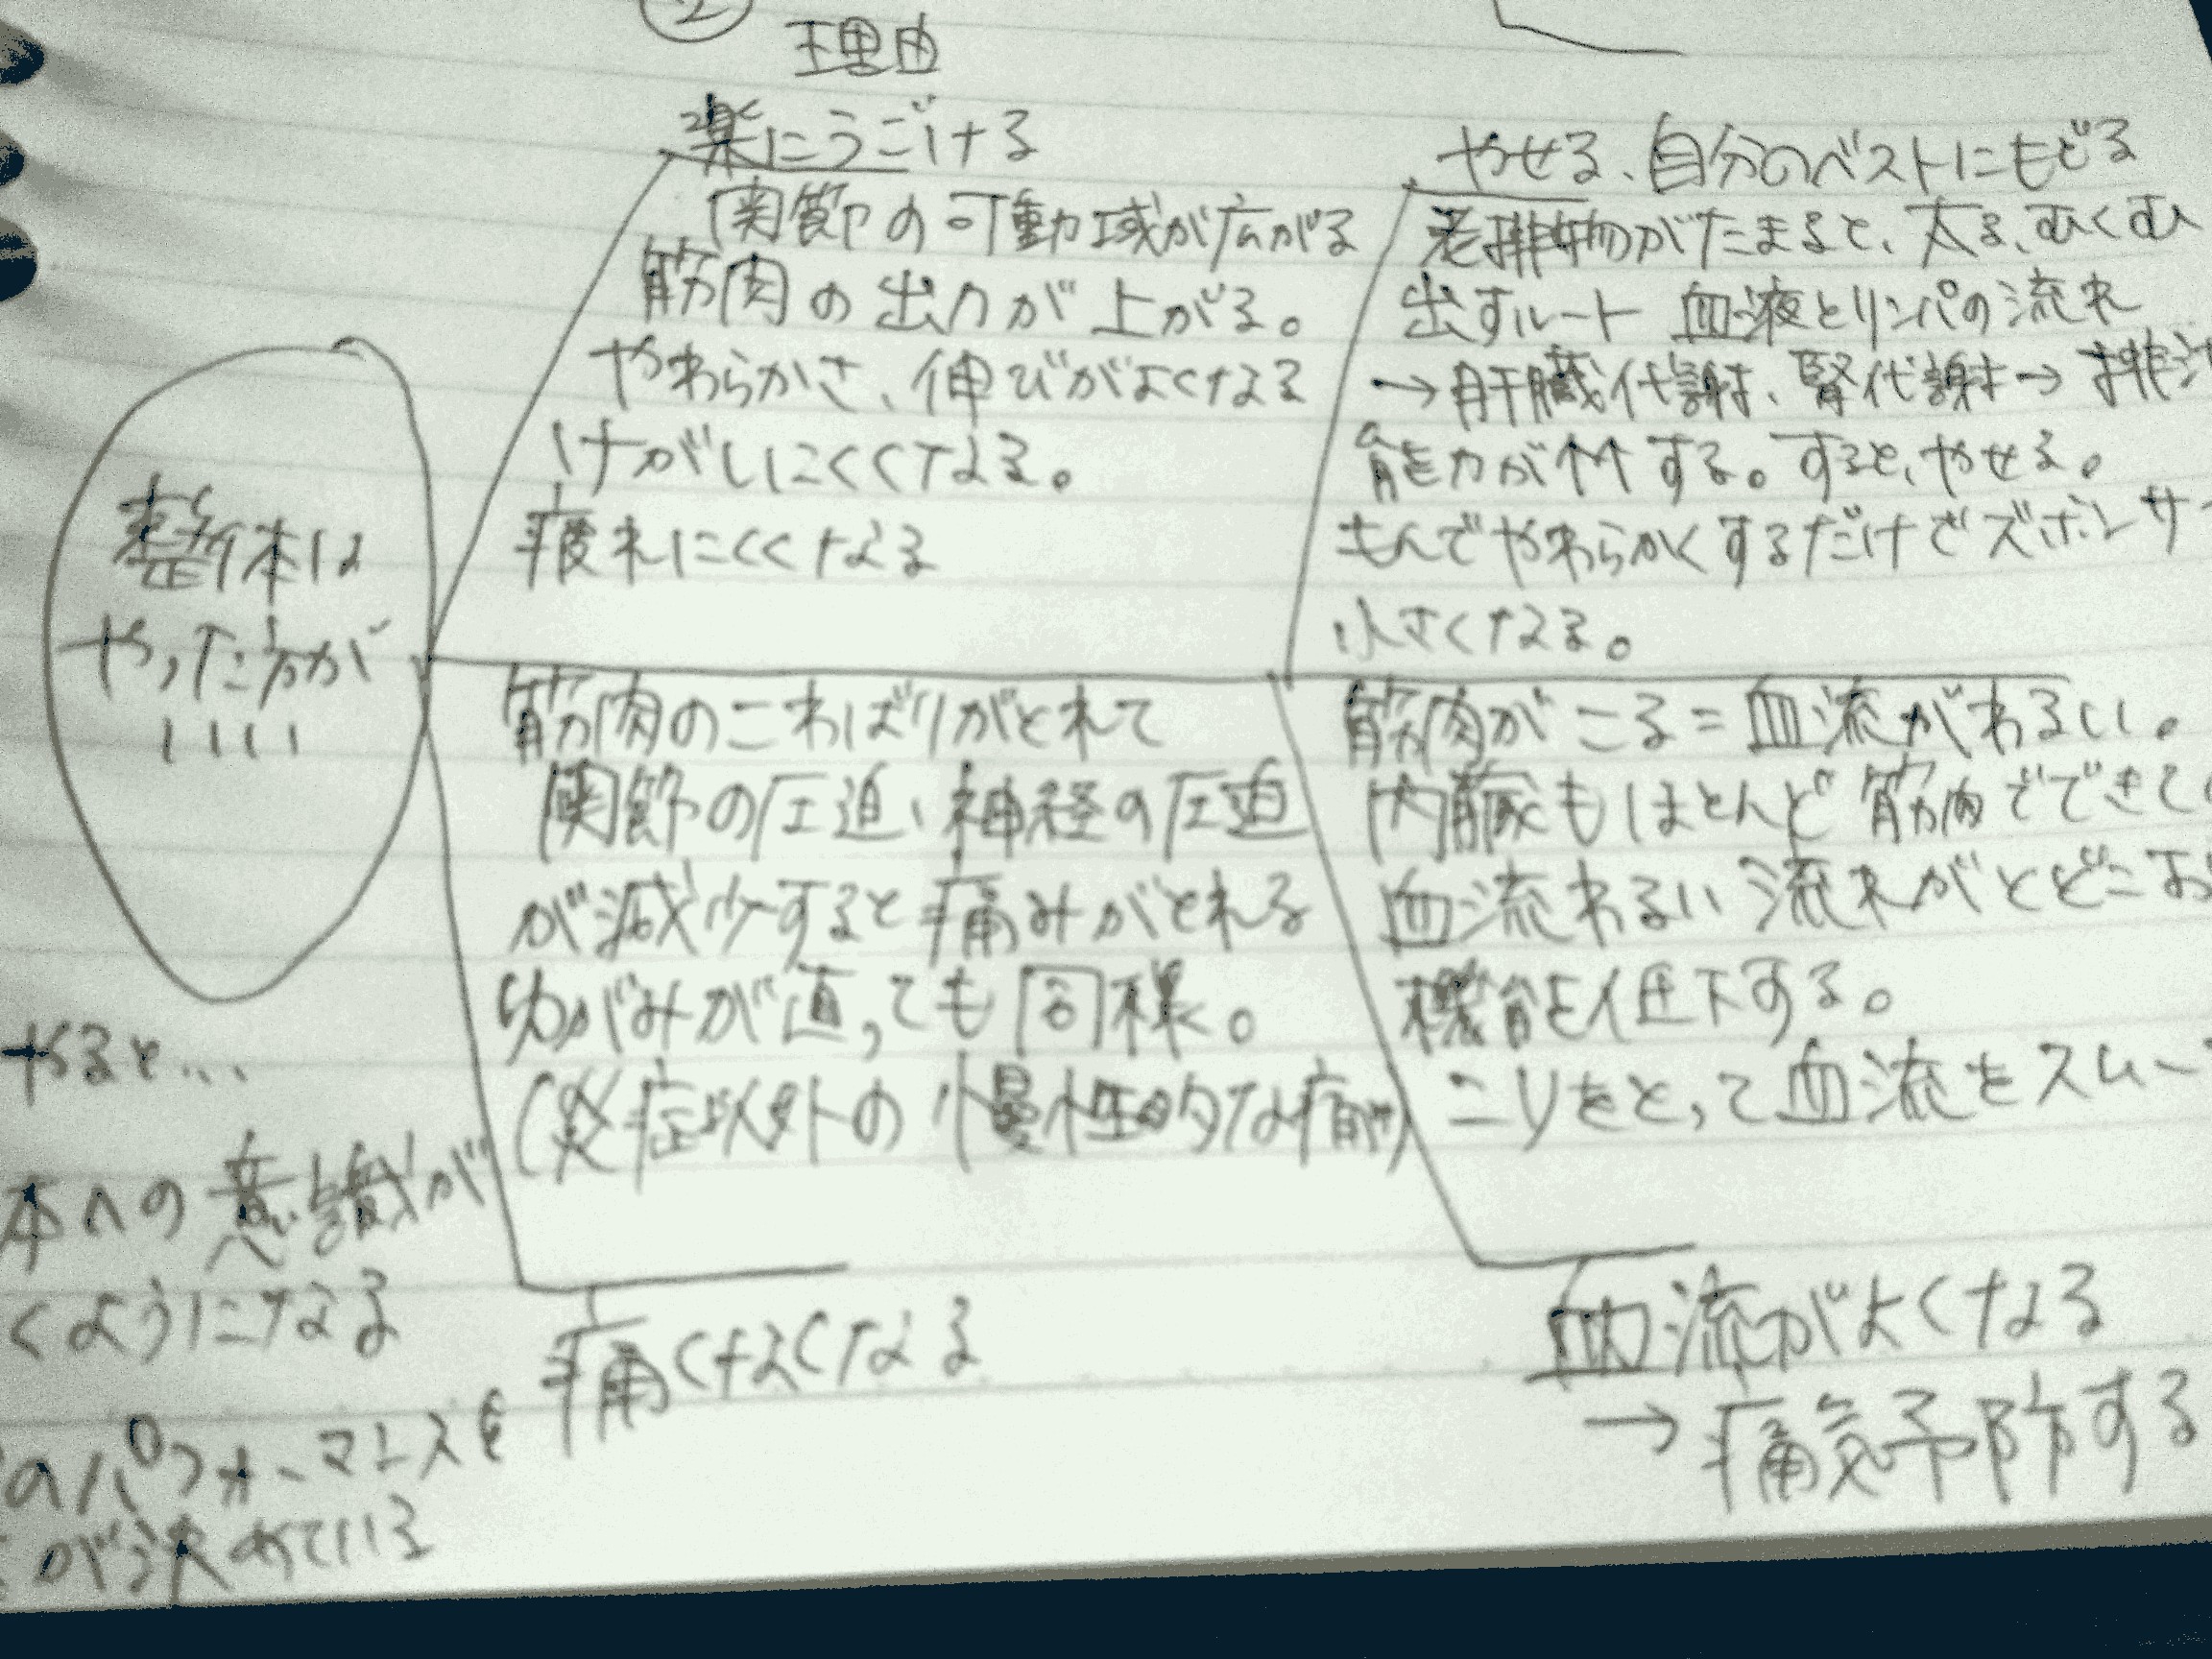 ②
理由
楽にうごける
関節の可動域が広がる
筋肉の出力が上がる。
やわらかさ、伸びがよくなる
けがしにくくなる。
疲れにくくなる
やせる、自分のベストにもどる
老排物がたまると、太る、むくむ
出すルート 血液とリンパの流れ
→肝臓代謝、腎代謝→排
能力が↑↑する。すると、やせる。
もんでやわらかくするだけでズボンサ
小さくなる。
整体は
やった方が
いい
筋肉のこわばりがとれて
関節の圧迫、神経の圧迫
が減少すると痛みがとれる
ゆがみが直っても同様。
(炎症以外の慢性的な痛み)
痛くなくなる
筋肉がこる=血流がわるい。
内臓もほとんど筋肉でできて
血流わるい 流れがとどこお
機能低下する。
コリをとって血流をスムー
血流がよくなる
→病気予防する
やると...
体への意識が
くようになる
のパフォーマンスを
が決めている